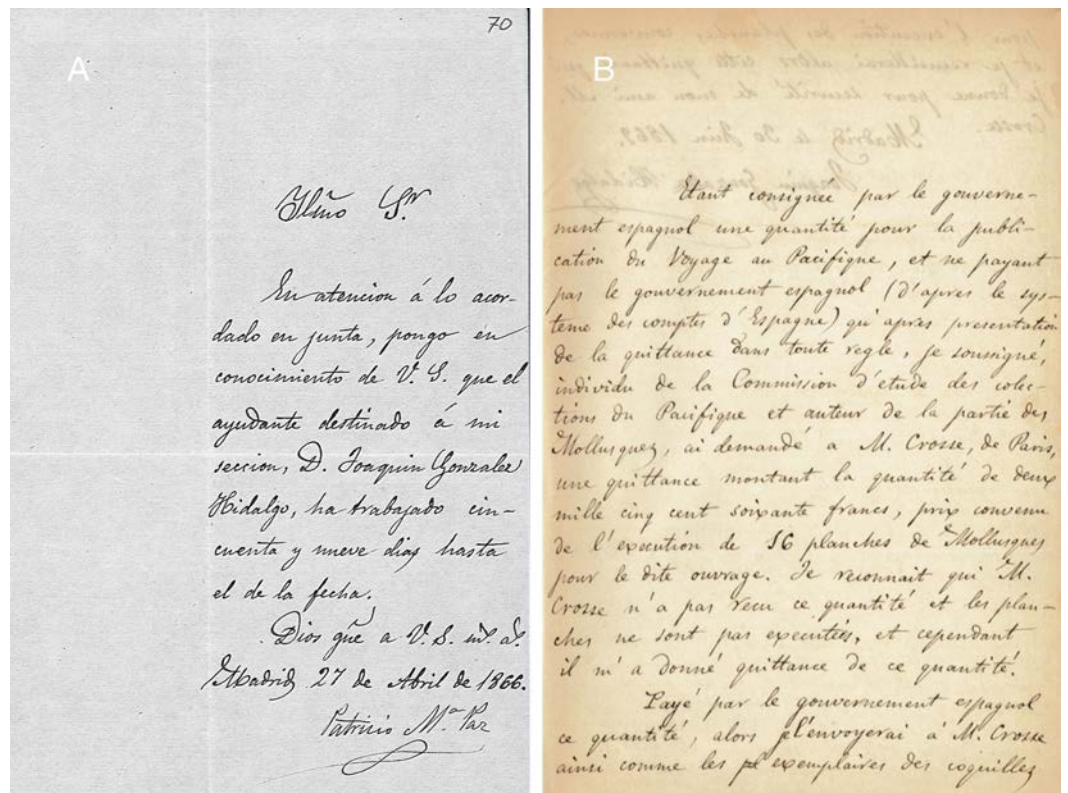 70
A
Ylmo Sr.
En atencion á lo acor-
dado en junta, pongo en
conocimiento de V. S. que el
ayudante destinado á mi
seccion, D. Joaquin Gonzalez
Hidalgo, ha trabajado cin-
cuenta y nueve dias hasta
el de la fecha.
Dios gue a V. S. ms. as.
Madrid 27 de Abril de 1866.
Patricio Ma. Paz
B
Etant consignée par le gouverne-
ment espagnol une quantité pour la publi-
cation du Voyage au Pacifique, et ne payant
pas le gouvernement espagnol (d'apres le sys-
teme des comptes d'Espagne) qu'apres presentation
de la quittance dans toute regle, je soussigné,
individu de la Commission d'etude des colec-
tions du Pacifique et auteur de la partie des
Mollusques, ai demandé a M. Crosse, de Paris,
une quittance montant la quantité de deux
mille cinq cent soixante francs, prix convenu
de l'execution de 16 planches de Mollusques
pour le dite ouvrage. Je reconnait qui M.
Crosse n'a pas recu ce quantité et les plan-
ches ne sont pas executées, et cependant
il m'a donné quittance de ce quantité.
Payé par le gouvernement espagnol
ce quantité, alors je l'envoyerai à M. Crosse
ainsi comme les exemplaires des coquilles